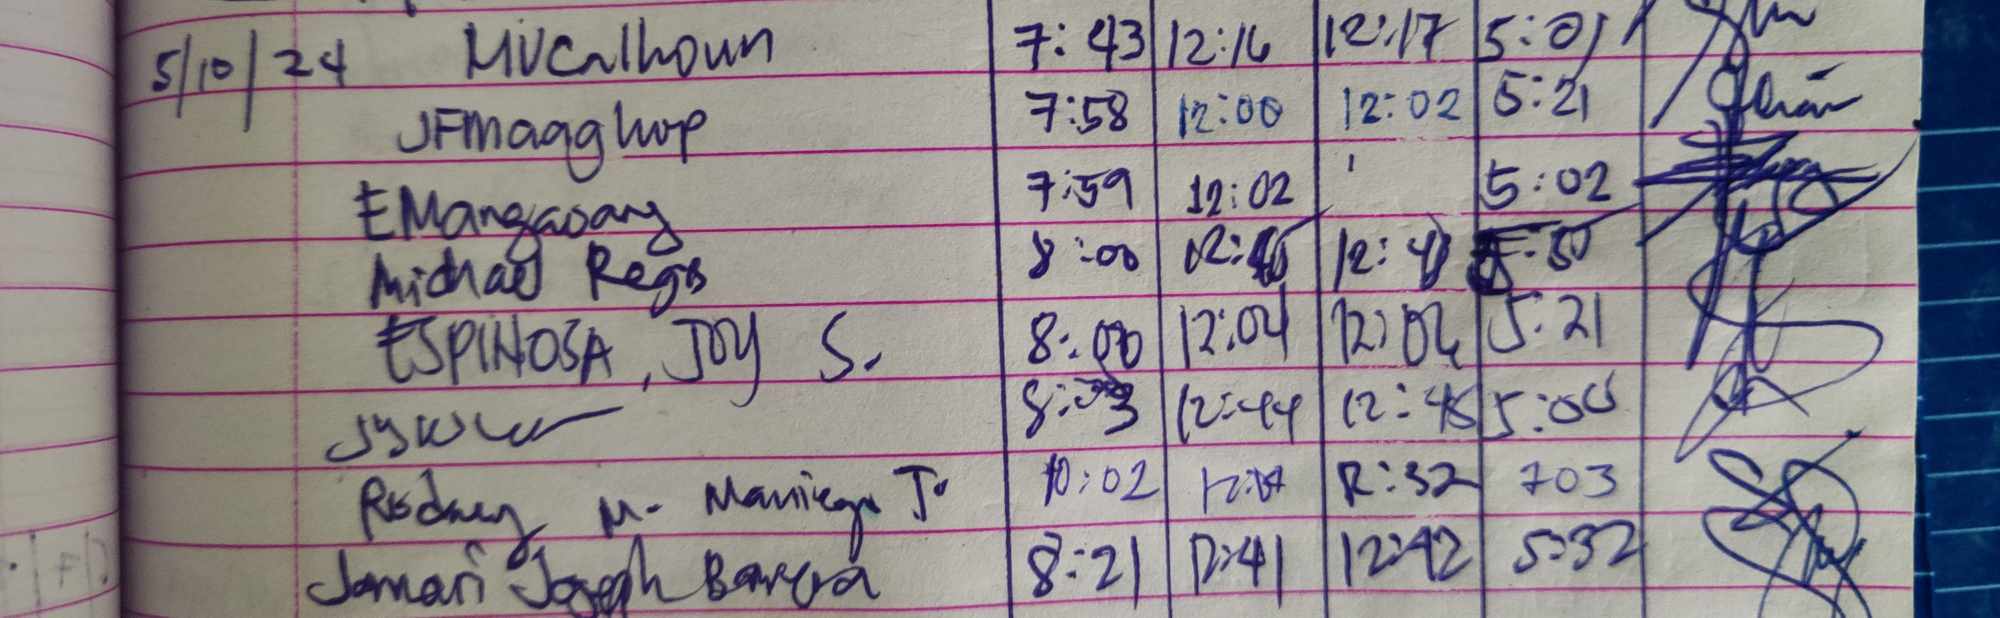 5/10/24 MVCalhoun 7:43 12:16 12:17 5:01
JFMaaghop 7:58 12:00 12:02 5:21
EMangaoang 7:59 12:02 5:02
Michael Regis 8:00 12:41
ESPINOSA, JOY S. 8:00 12:04 12:04 5:21
12:44 12:45 5:00
Rodney M. Maniego Jr 10:02 12:32 703
Jomari Joseph Barrera 8:21 12:41 12:42 5:32